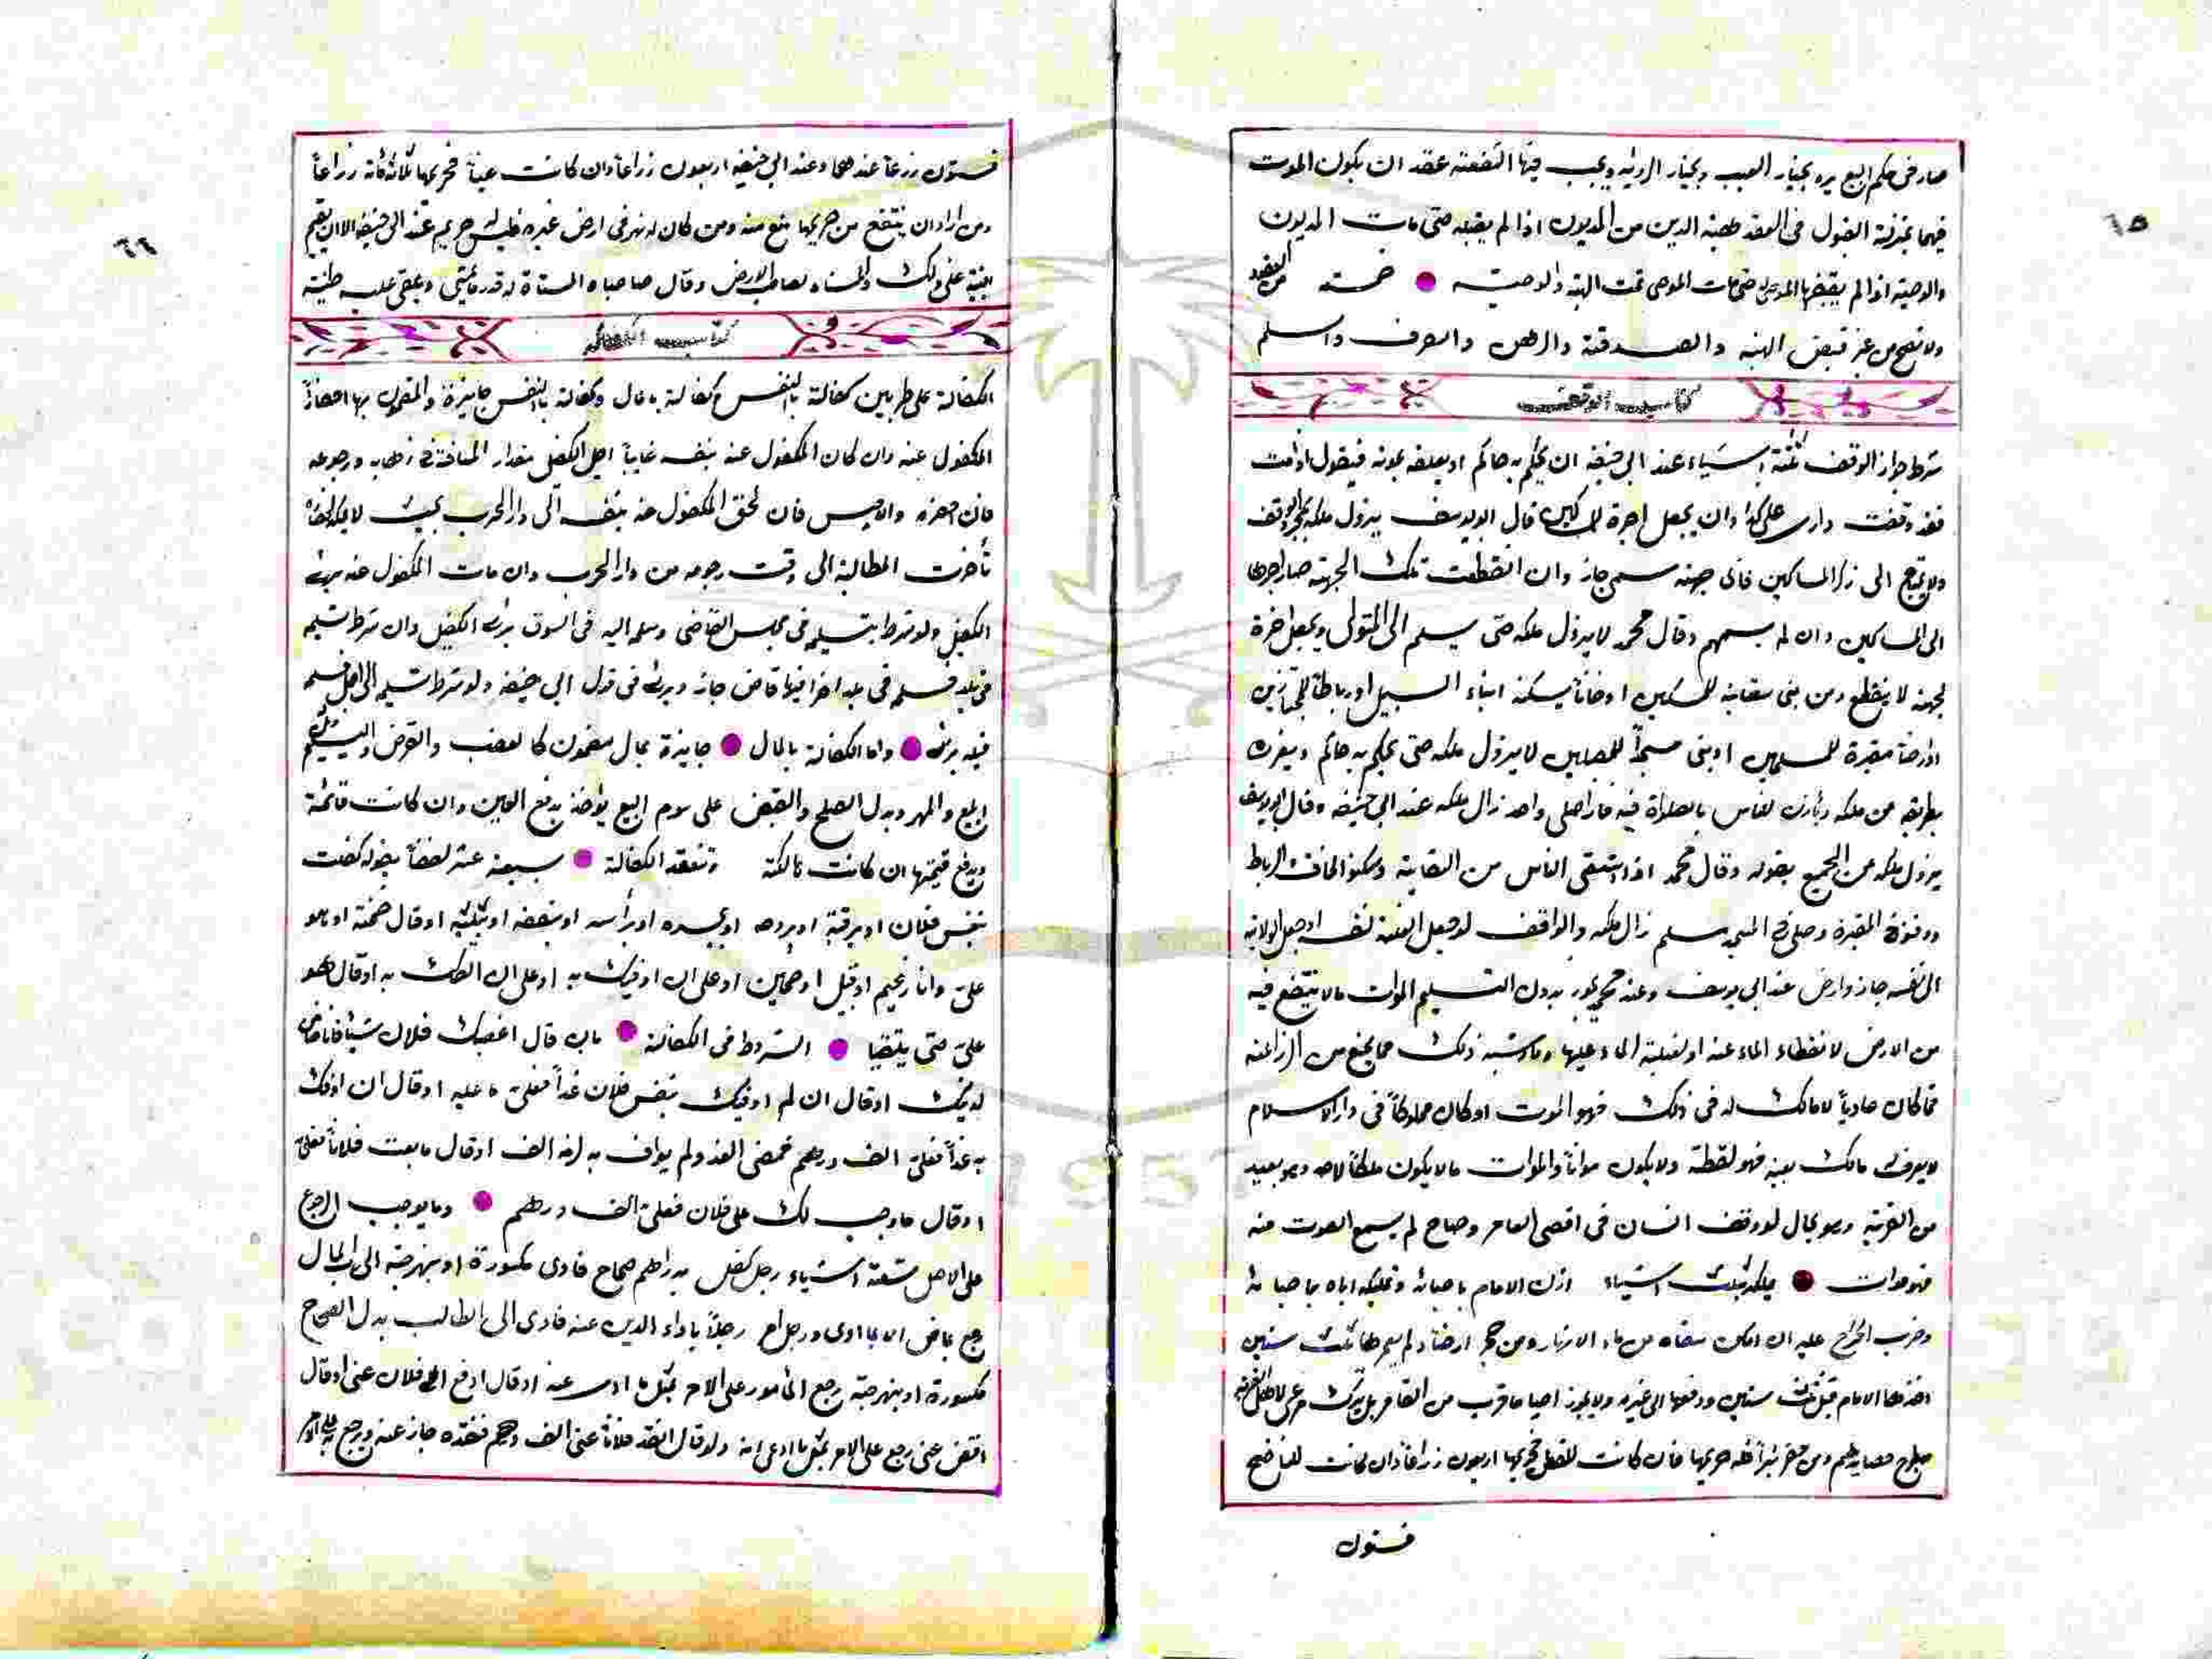 ٦٥
صار فى حكم البيع يرد بخيار العيب وبخيار الرؤيه ويجب فيها الشفعته عقد ان يكون الموت
فيهما بمنزلة القبول فى العقد هبة الدين من المديون اذا لم يقبله حتى مات المديون
والوصيته اذا لم يقبضها الموصى له حتى مات الموصى تمت الهبة والوصيته خمسته من العقود
ولا تصح من غير قبض الهبه والصدقة والرهن والصرف والسلم
كتاب الوقف
شرط جواز الوقف ثلثة اشياء عند ابى حنيفه ان يحكم به حاكم او يعلقه بموته فيقول اذا مت
فقد وقفت دارى على كذا وان يجعل اجرة للمساكين قال ابو يوسف يزول ملكه بمجرد الوقف
ولا يحتاج الى ذكر المساكين فاى جهته سمى جاز وان انقطعت تلك الجهته صار اجرها
الى المساكين وان لم يسمهم وقال محمد لا يزول ملكه حتى يسلم الى المتولى ويجعل اخرة
لجهته لا ينقطع ومن بنى سقاية للمسلمين او خاناً يسكنه ابناء السبيل او رباطاً للمجتازين
او ارضاً مقبرة للمسلمين او بنى مسجداً للمصلين لا يزول ملكه حتى يحكم به حاكم ويفرزه
بطريقه من ملكه ويأذن للناس بالصلاة فيه فاذا صلى واحد زال ملكه عند ابى حنيفه وقال ابو يوسف
يزول ملكه عن الجميع بقوله وقال محمد اذا استقى الناس من السقاية وسكنوا الخان والرباط
ودفنوا فى المقبرة وصلى فى المسجد مسلم زال ملكه والواقف لو جعل الغلة لنفسه او جعل الولاية
الى نفسه جاز وارض عند ابى يوسف وعند محمد يجوز بدون التسليم الموات مالا ينتفع فيه
من الارض لانقطاء الماء عنه او لغلبة الماء عليها وما اشبه ذلك مما يمنع من الزراعته
فما كان عادياً لا مالك له فى ذلك فهو الموت او كان مملوكاً فى دار الاسلام
لا يعرف مالك بعينه فهو لقطة ولا يكون مواتاً والموات مالا يكون ملكاً لاحد وهو بعيد
من القرية وهو بحال لو وقف انسان فى اقصى العامر وصاح لم يسمع الصوت منه
فهو موات يملكه بثلث اشياء اذن الامام باحيائه وتمليكه اياه باحيائه
وضرب الخراج عليه ان امكن سقاه من ماء الانهار ومن حجر ارضاً ولم يعمرها ثلث سنين
اخذها الامام قبل ثلث سنين ودفعها الى غيره ولا يجوز احيا ما قرب من العامر بل يترك مرعى لاهل القرية
مطرح حصايدهم ومن حفر بئراً فله حريمها فان كانت للعطن فحريمها اربعون زراعاً وان كانت للناضح
فستون
٦٦
فستون زرعاً عندهما وعند ابى حنيفه اربعون زراعاً وان كانت عيناً فحريمها ثلاثمائة زراعاً
ومن اراد ان ينتفع من حريمها منع منه ومن كان له نهر فى ارض غيره فليس حريم عند ابى حنيفه الا ان يقيم
البينة على ذلك والمسناه لصاحب الارض وقال صاحباه المسناة له قدر ما يمشى ويلقى عليه طينه
كتاب الكفالة
الكفالة على ضربين كفالة بالنفس وكفالة بمال وكفالة بالنفس جايزة والمضمون بها احضار
المكفول عنه وان كان المكفول عنه بنفسه غايباً اجل الكفيل مقدار المسافة فى ذهابه ورجوعه
فان احضره والا حبس فان لحق المكفول عنه بنفسه الى دار الحرب بحيث لا يمكنه احضاره
تأخرت المطالبة الى وقت رجوعه من دار الحرب وان مات المكفول عنه برئ
الكفيل ولو شرط تسليمه فى مجلس القاضى وسلمه اليه فى السوق برئ الكفيل وان شرط تسليمه
فى بلد فسلمه فى بلد اخر فيها قاض جاز وبرئ فى قول ابى حنيفه ولو شرط تسليمه الى اجل فسلمه
قبله برئ واما الكفالة بالمال جايزة بمال مضمون كالغصب والقرض والتسليم
البيع والمهر وبدل الصلح والقبض على سوم البيع يؤخذ بدفع العين وان كانت قائمة
ويدفع قيمتها ان كانت هالكة وتنعقد الكفالة سبعة عشر لفظاً بقوله كفلت
بنفس فلان او برقبة او بروحه او بجسده او برأسه او بنصفه او بثلثه او قال ضمنته او هو
على وانا زعيم او قبيل او ضمين او على ان اوفيك به او على ان القاك به او قال هو
على حتى يلتقيا الشروط فى الكفالة بان قال اغصبك فلان شيئاً فانا ضامن
لذلك او قال ان لم اوفيك بنفس فلان غداً فعلى ما عليه او قال ان اوفك
به غداً فعلى الف درهم فمضى الغد ولم يواف به لزمه الف او قال ما بعت فلاناً فعلى
او قال ما وجب لك على فلان فعلى الف درهم وما يوجب الرجوع
على الاصل تسعة اشياء رجل كفل بدراهم صحاح فادى مكسورة او نبهرجة الى رب المال
رجع بما ضمن لا بما ادى ورجل امر رجلاً باداء الدين عنه فادى الى الطالب بدل الصحاح
مكسورة او نبهرجة رجع المأمور على الامر بمثل ما ادى عنه او قال ادفع الى فلان عنى او قال
اقض عنى رجع على الامر بمثل ما ادى انه ولو قال انقد فلاناً عنى الف درهم فنقده جاز عنه ورجع به على الامر